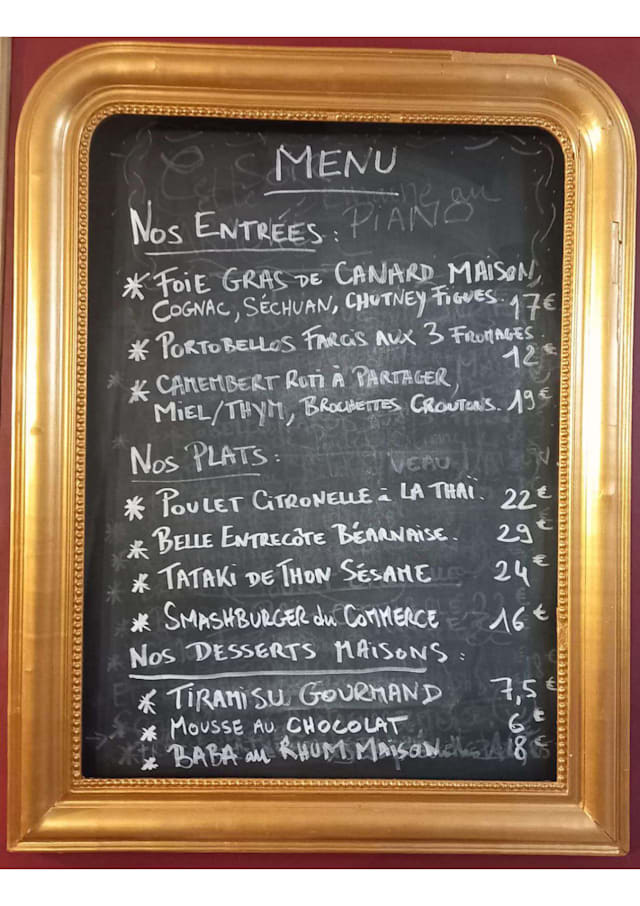 MENU
NOS ENTRÉES : PIANO
* FOIE GRAS DE CANARD MAISON,
COGNAC, SÉCHUAN, CHUTNEY FIGUES. 17€
* PORTOBELLOS FARCIS AUX 3 FROMAGES.
12€
* CAMEMBERT ROTI À PARTAGER,
MIEL/THYM, BROCHETTES CROUTONS. 19€
NOS PLATS : VEAU
* POULET CITRONELLE à LA THAÏ. 22€
* BELLE ENTRECÔTE BÉARNAISE. 29€
* TATAKI DE THON SÉSAME 24€
* SMASHBURGER du COMMERCE 16€
NOS DESSERTS MAISONS :
* TIRAMISU GOURMAND 7,5€
* MOUSSE AU CHOCOLAT 6€
* BABA au RHUM MAISON 8€